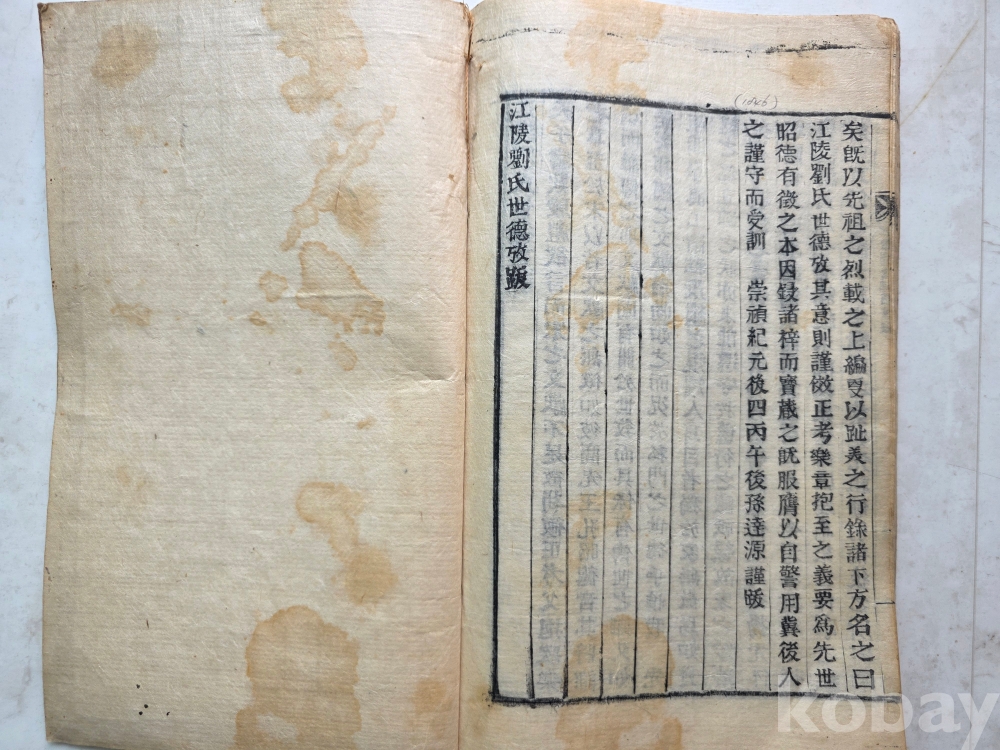 矣旣以先祖之烈載之上編叓以趾美之行錄諸下方名之曰
江陵劉氏世德攷其意則謹倣正考樂章抱至之義要爲先世
昭德有徵之本因鋟諸梓而寶蔵之旣服膺以自警用冀後人
之謹守而受訓 崇禎紀元後四丙午後孫達源謹跋
江陵劉氏世德攷跋
(1846)
kobay